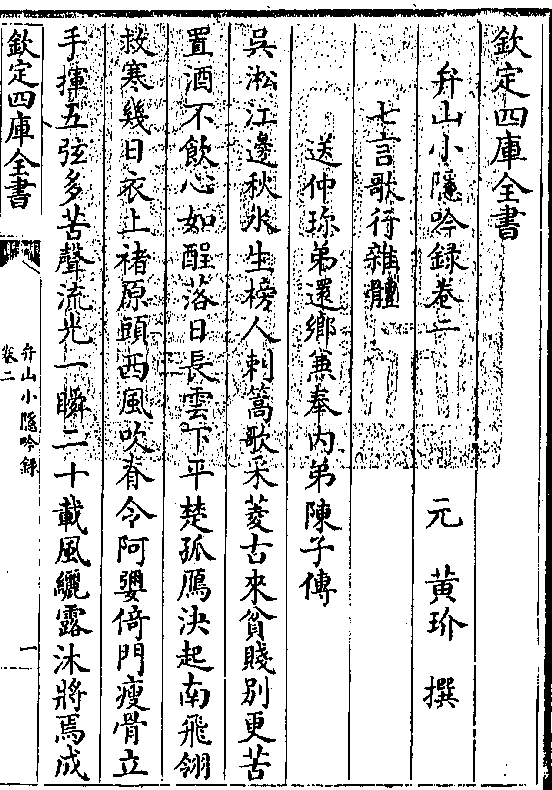 欽定四庫全書
弁山小隱吟録卷二
元　黃玠　撰
七言歌行雜體
送仲珍弟還鄉兼奉內弟陳子傳
吳淞江邊秋水生榜人刺篙歌采菱古來貧賤別更苦
置酒不飲心如酲落日長雲下平楚孤鴈決起南飛翎
救寒幾日衣上褚原頭西風吹脊令阿㜲倚門瘦骨立
手揮五弦多苦聲流光一瞬二十載風纚露沐將焉成
欽定四庫全書
弁山小隱吟録
卷二
一